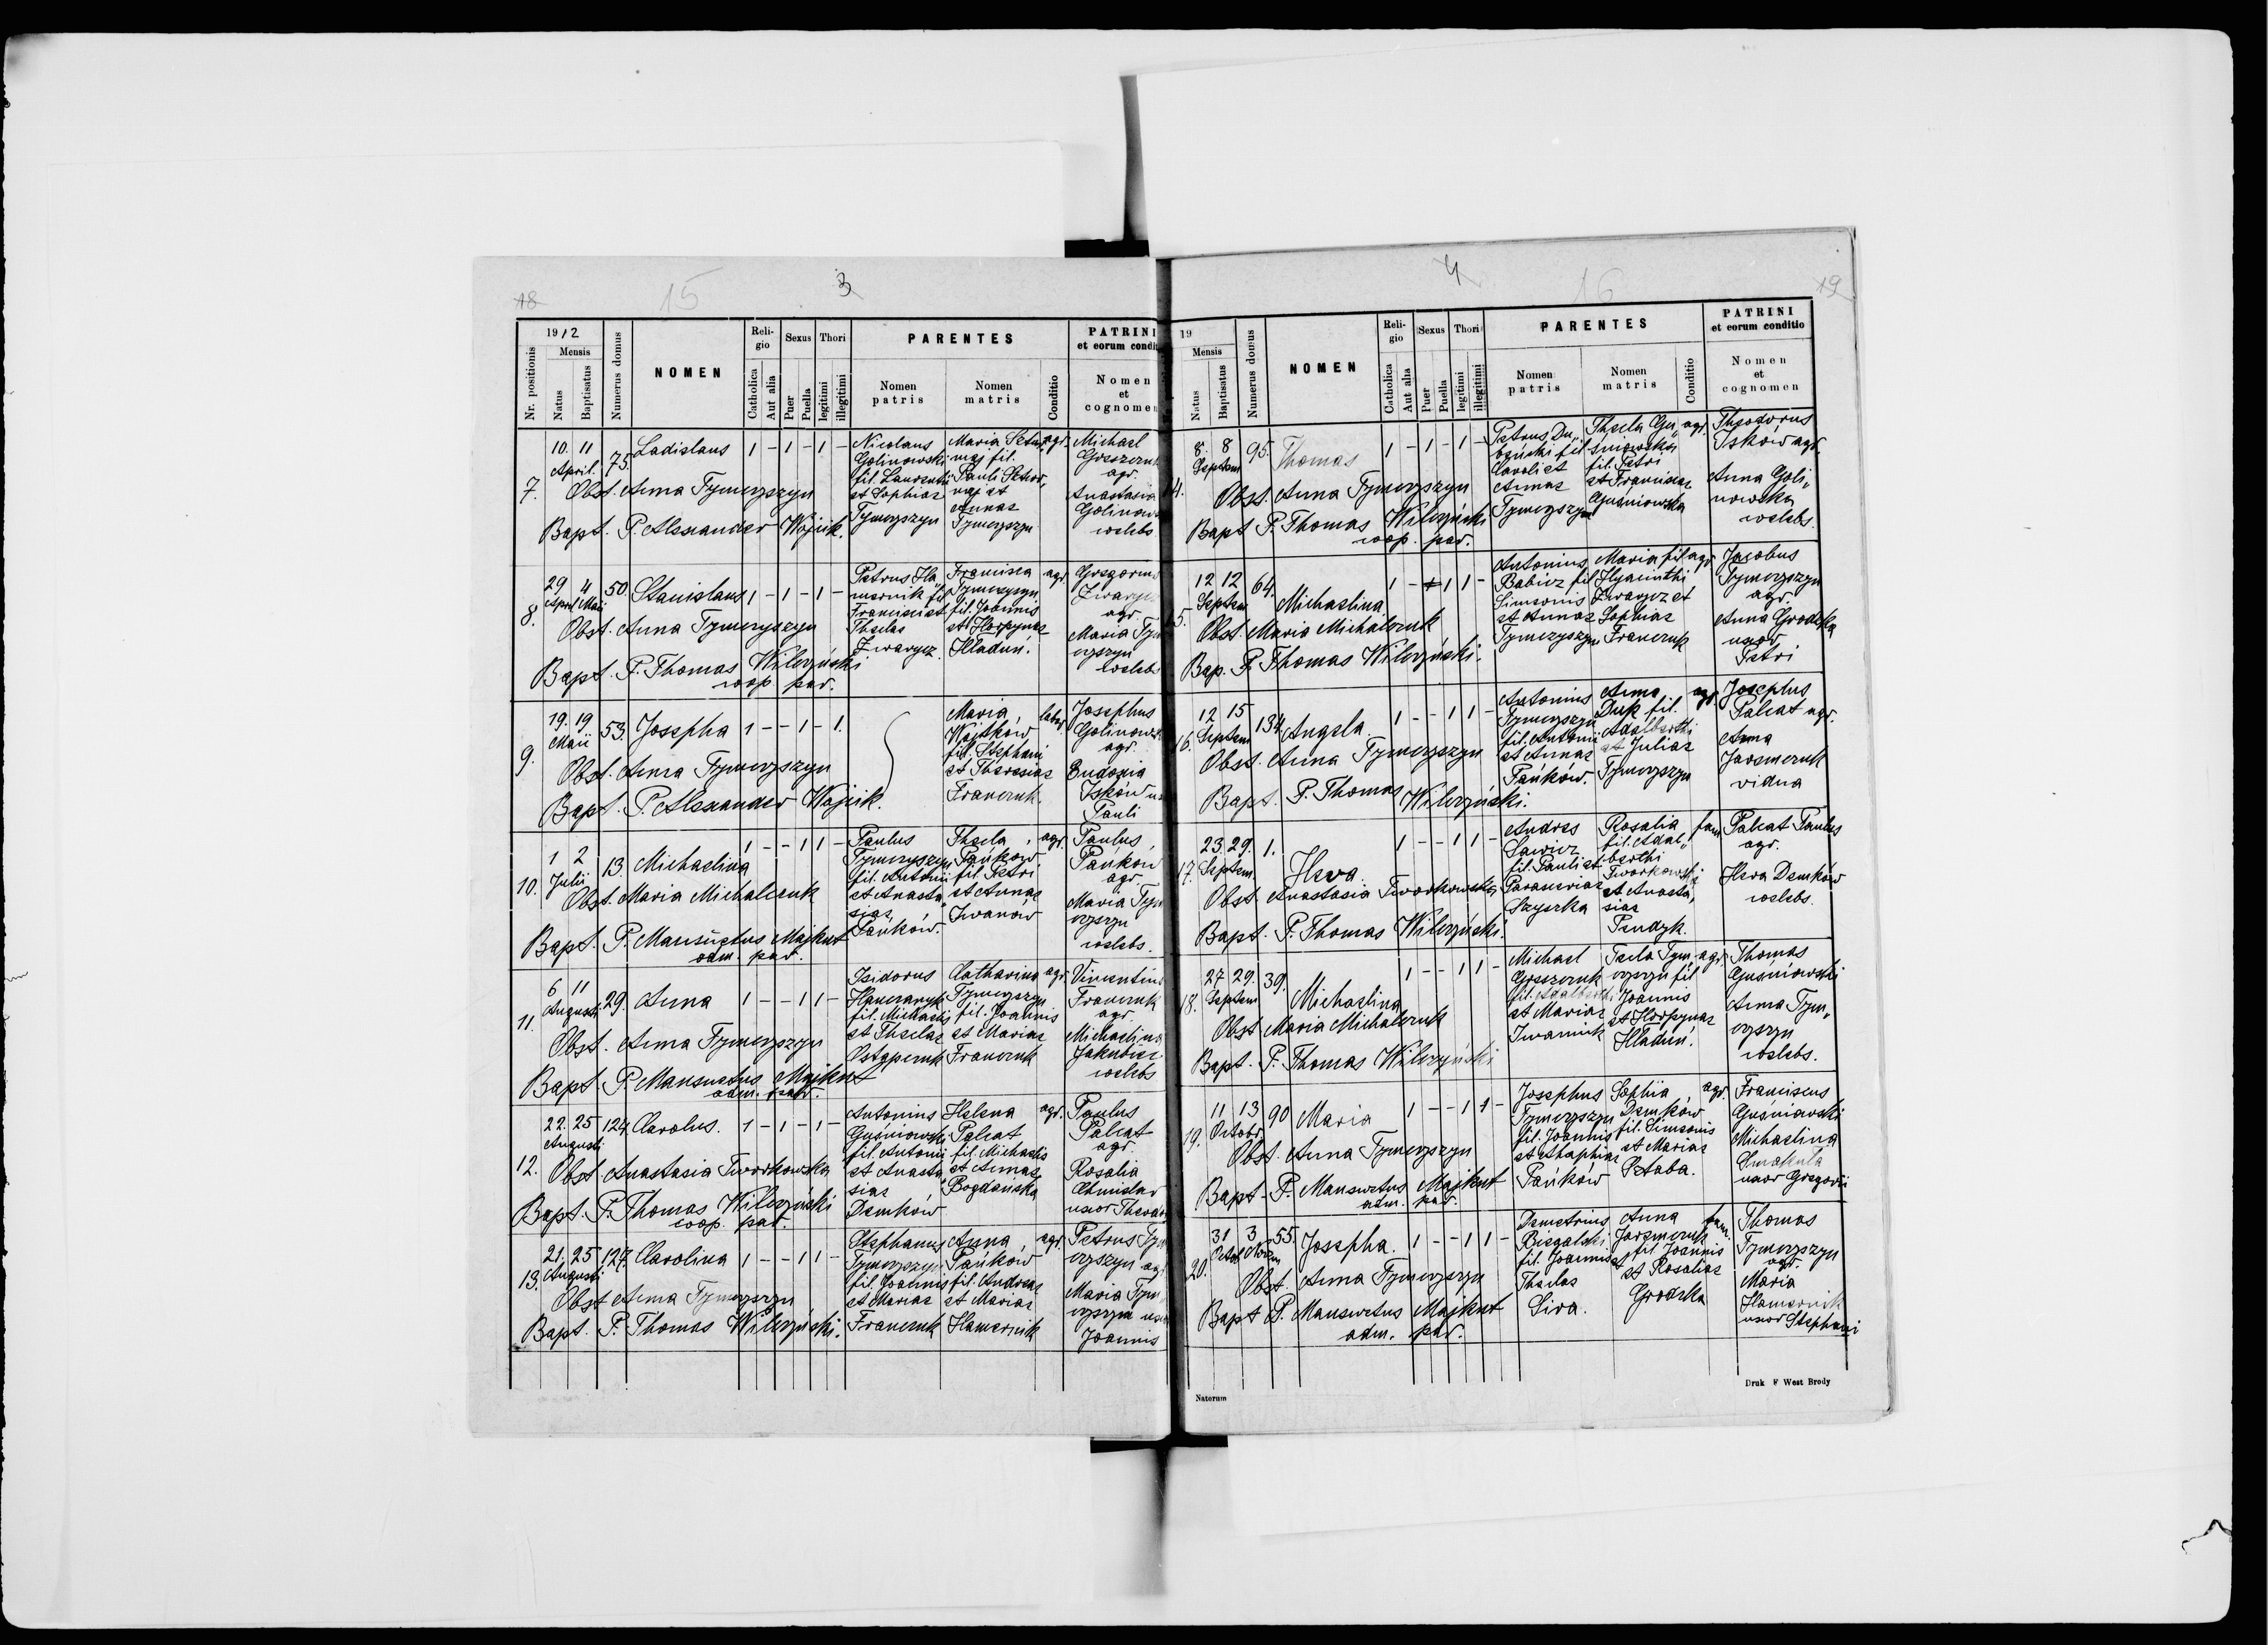 18 15 3
1912
Nr. positionis
Mensis
Natus
Baptisatus
Numerus domus
NOMEN
Reli-
gio
Catholica
Aut alia
Sexus
Puer
Puella
Thori
legitimi
illegitimi
PARENTES
Nomen
patris
Nomen
matris
Conditio
PATRINI
et eorum condit
Nomen
et
cognomen
7.
10. 11
April.
75.
Ladislaus
1 - 1 - 1 -
Obst. Anna Tymczyszyn
Bapt. P. Alexander Wójcik.
Nicolaus
Golinowski
fil. Laurentii
et Sophiae
Tymczyszyn
Maria
fil.
Pauli
et
Annae
Tymczyszyn
agr.
Michael
agr.
Anastasia
Golinow
coelebs
8.
29 4
April Maii
50.
Stanislaus
1 - 1 - 1 -
Obst. Anna Tymczyszyn
Bapt. P. Thomas Wilczyński
coop. par.
Petrus Ha„
mernik fil.
Francisci et
Theclae
Zwarycz
Francisca
Tymczyszyn
fil. Joannis
et Horpynae
Hladun.
agr.
Gregorius
agr.
Maria Tym
czyszyn
coelebs
9.
19. 19
Maii
53.
Josepha
1 - - 1 - 1.
Obst. Anna Tymczyszyn
Bapt. P. Alexander Wójcik.
Maria
Wojtków
fil. Stephani
et Theresiae
Franczuk.
Josephus
Golinows
agr.
Eudoxia
Isków
Pauli
10.
1 2
Julii
13.
Michaelina
1 - - 1 1 -
Obst. Maria Michalczuk
Bapt. P. Mansuetus Majkut
adm. par.
Paulus
Tymczyszyn
fil. Antonii
et Anasta„
siae
Pańków.
Thecla
Pańków
fil. Petri
et Annae
Iwanów
agr.
Paulus
Pańków
agr.
Maria Tym
czyszyn
coelebs.
11.
6 11
Augusti
29.
Anna
1 - - 1 1 -
Obst. Anna Tymczyszyn
Bapt. P. Mansuetus Majkut
adm. par.
Isidorus
fil. Michaelis
et Theclae
Ostapczuk
Catharina
Tymczyszyn
fil. Joannis
et Mariae
Franczuk
agr.
Vincentius
Franczuk
agr.
Michaelina
coelebs
12.
22. 25
Augusti
124.
Carolus.
1 - 1 - 1 -
Obst. Anastasia Tworkowska
Bapt. P. Thomas Wilczyński
coop. par.
Antonius
Guśniowski
fil. Antonii
et Anasta„
siae
Demków
Helena
Palcat
fil. Michaelis
et Annae
Bogdańska
agr.
Paulus
Palcat
agr.
Rosalia
uxor Theodor
13.
21. 25
Augusti
127.
Carolina
1 - - 1 1 -
Obst. Anna Tymczyszyn
Bapt. P. Thomas Wilczyński.
Stephanus
Tymczyszyn
fil. Joannis
et Mariae
Franczuk
Anna
Pańków
fil. Andreae
et Mariae
Hamernik
agr.
Petrus Tym
czyszyn agr
Maria Tym„
czyszyn uxor
Joannis
4 16 19
19
Mensis
Natus
Baptisatus
Numerus domus
NOMEN
Reli-
gio
Catholica
Aut alia
Sexus
Puer
Puella
Thori
legitimi
illegitimi
PARENTES
Nomen
patris
Nomen
matris
Conditio
PATRINI
et eorum conditio
Nomen
et
cognomen
14.
8. 8
Septem
95.
Thomas
1 - 1 - 1 -
Obst. Anna Tymczyszyn
Bapt P. Thomas Wilczyński
coop. par.
Petrus Du„
fil
Caroli et
Annae
Tymczyszyn
Thecla Gu„
śniowska
fil. Petri
et Franciscae
Guśniowska
agr.
Theodorus
Isków agr.
Anna Goli„
nowska
coelebs.
15.
12 12
Septem
64.
Michaelina
1 - 1 1 -
Obst. Maria Michalczuk
Bap. P. Thomas Wilczyński.
Antonius
Babicz fil
Simeonis
et Annae
Tymczyszyn
Maria fil
Hyacinthi
Zwarycz et
Sophiae
Franczuk
agr
Jacobus
Tymczyszyn
agr.
Anna Grodzka
uxor
Petri
16.
12 15
Septem
134.
Angela.
1 - - 1 1 -
Obst. Anna Tymczyszyn
Bapt. P. Thomas Wilczyński.
Antonius
Tymczyszyn
fil. Antonii
et Annae
Pańków.
Anna
Duk fil.
Adalberthi
et Juliae
Tymczyszyn
agr.
Josephus
Palcat agr.
Anna
Jaremczuk
vidua
17.
23. 29.
Septem
1.
Heva.
1 - - 1 1 -
Obst Anastasia Tworkowska
Bapt. P. Thomas Wilczyński.
Andreas
Sawicz
fil. Pauli et
Parasceviae
Szyszka
Rosalia
fil. Adal„
berthi
Tworkowski
et Anasta„
siae
Pendzyk.
fam
Palcat Paulus
agr.
Heva Demków
coelebs.
18.
27 29.
Septem
39.
Michaelina
1 - - 1 1 -
Obst Maria Michalczuk
Bapt. P. Thomas Wilczyński
Michael
fil. Adalberthi
et Mariae
Tecla Tym
czyszyn fil
Joannis
et Horpynae
Hladun.
agr.
Thomas
Guśniowski
Anna Tym„
czyszyn
coelebs.
19.
11 13
Octobr
90
Maria
1 - - 1 1 -
Obst. Anna Tymczyszyn
Bapt. P. Mansuetus Majkut
adm. par.
Josephus
Tymczyszyn
fil. Joannis
et Agaphiae
Pańków
Sophia
Demków
fil. Simeonis
et Mariae
Sztaba.
agr.
Franciscus
Guśniowski
Michaelina
Smakula
uxor Gregorii
20.
31 3
Octob Novem
55.
Josepha.
1 - - 1 1 -
Obst. Anna Tymczyszyn
Bapt P. Mansuetus Majkut
adm. par.
Demetrius
Biegalski
fil. Joannis et
Theclae
Siva.
Anna
Jaremczuk
fil. Joannis
et Rosaliae
Grodzka
fam.
Thomas
Tymczyszyn
agr.
Maria
Hamernik
uxor Stephani
Natorum
Druk F West Brody